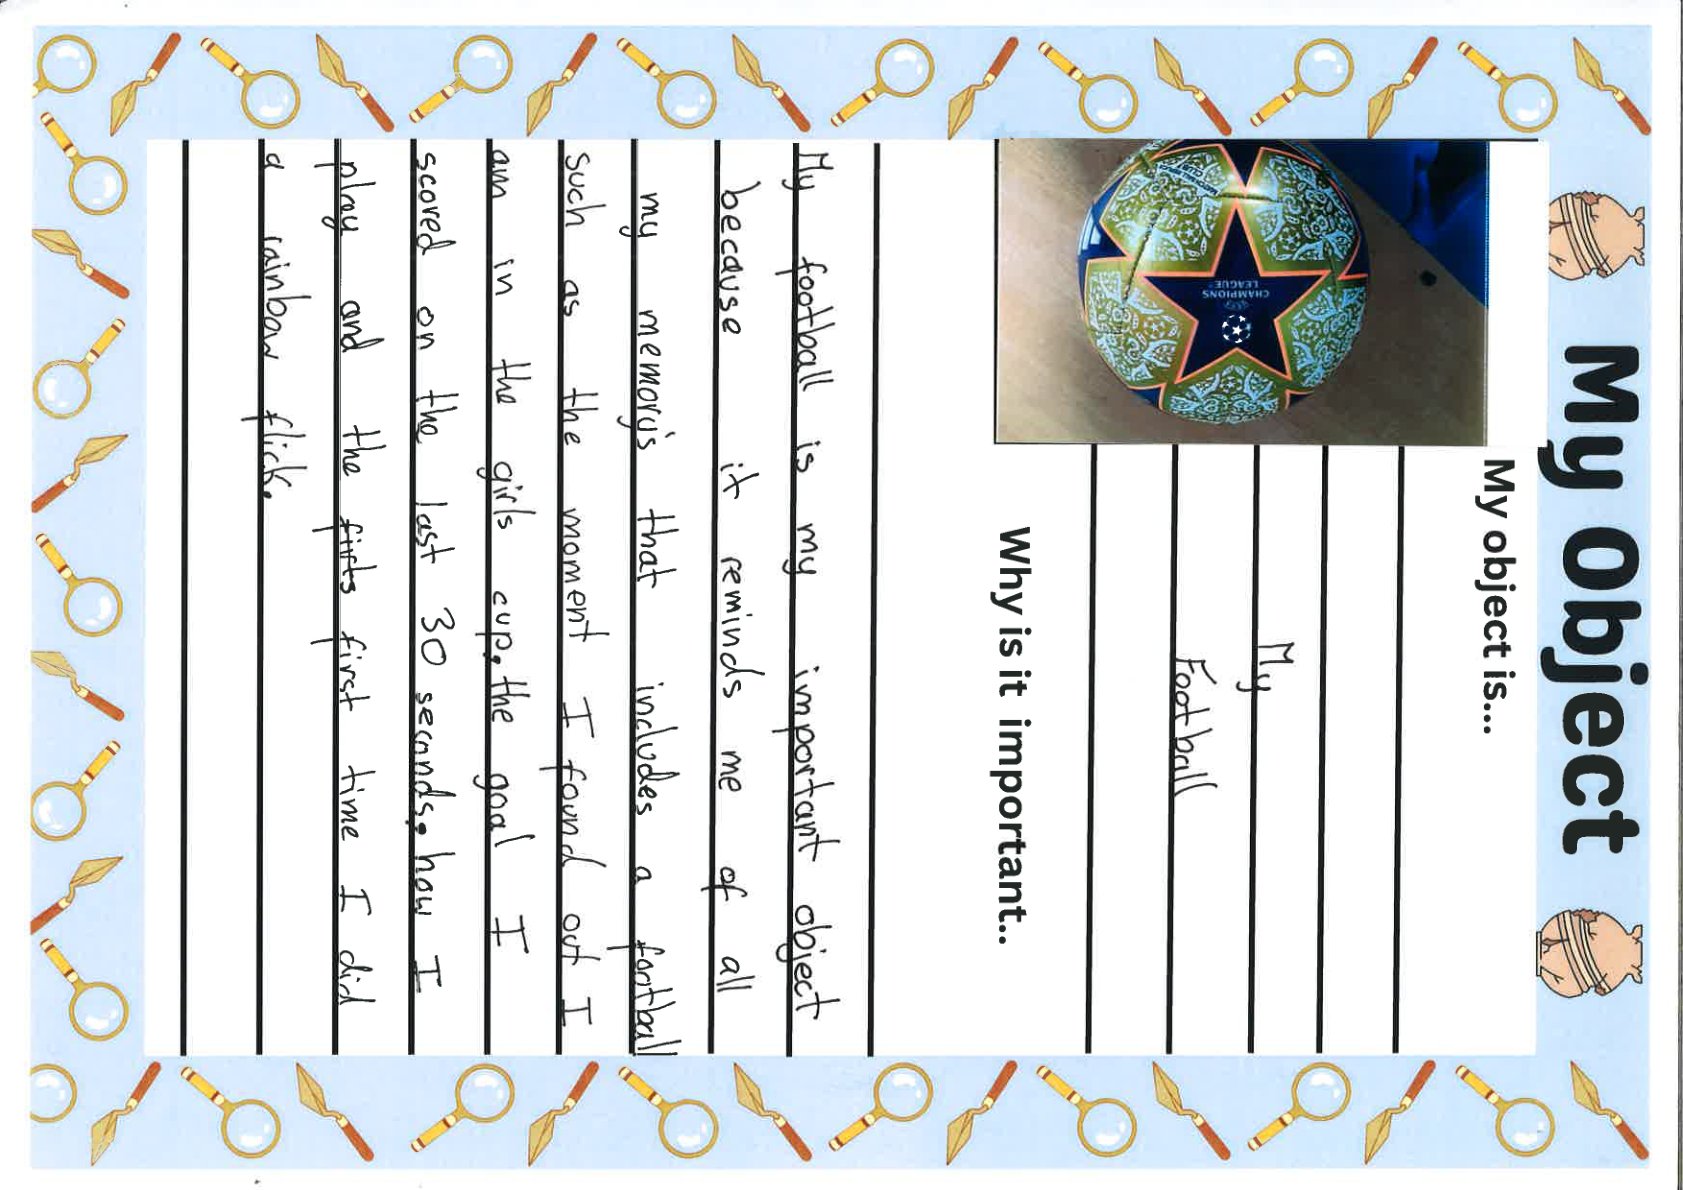 My Object
My object is...
CHAMPIONS
LEAGUE
My
Football
Why is it important..
My football is my important object
because it reminds me of all
my memory's that includes a football
such as the moment I found out I
am in the girls cup, the goal I
scored on the last 30 seconds, how I
play and the firts first time I did
a rainbow flick.